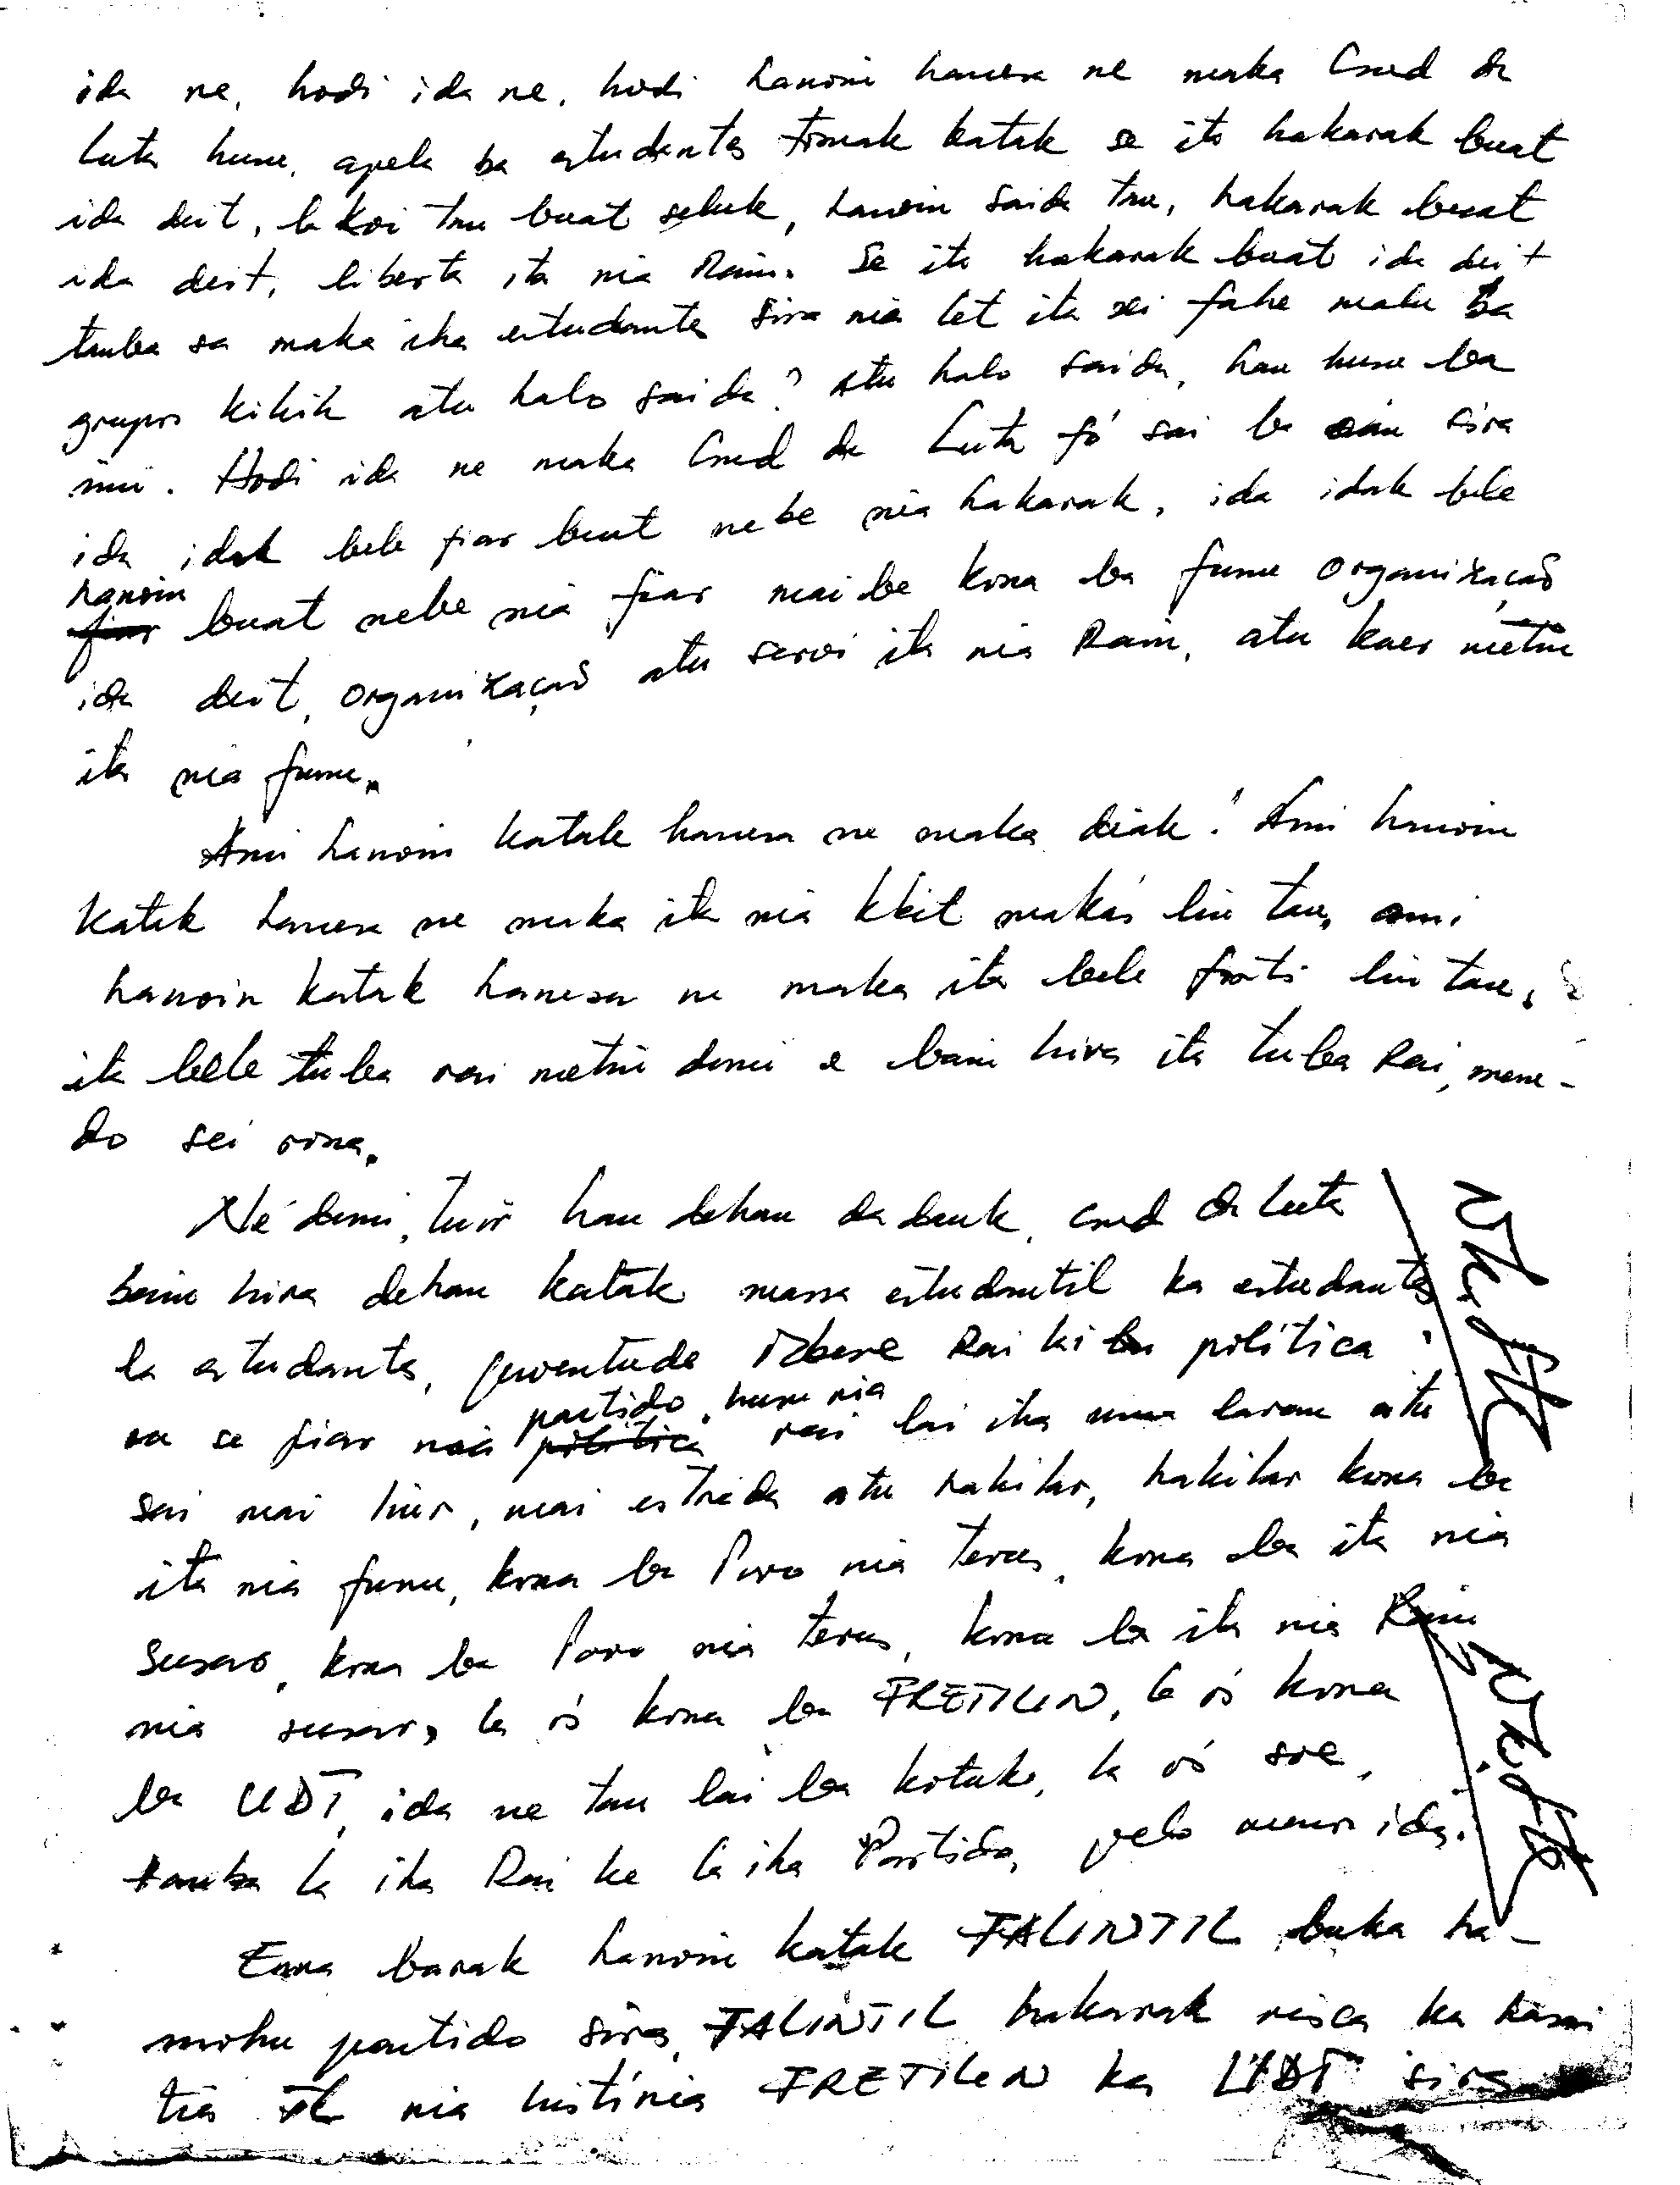 ida ne, hodi ida ne, hodi hanoin hanesa ne maka Cmd da
Luta husu, apela ba estudantes tomak katak se ita hakarak buat
ida deit, la koi tau buat seluk, hanoin saida tau, hakarak buat
ida deit, liberta ita nia Rain. Se ita hakarak buat ida deit
tanba sa maka iha estudantes sira nia let ita sei fahe malu ba
grupos kikik atu halo saida? Atu halo saida, hau husu ba
imi. Hodi ida ne maka Cmd da Luta fó sai ba sira
ida idak bele fiar buat nebe nia hakarak, ida idak bele
hanoin
fiar buat nebe nia fiar mai be kona ba funu organizaçaõ
ida deit, organizaçaõ atu servi ita nia Rain, atu kaer metin
ita nia funu.
Ami hanoin katak hanesa ne maka diak! Ami hanoin
katak hanesa ne maka ita nia kbit makás liu tau, ami
hanoin katak hanesa ne maka ita bele forti liu tau,
ita bele tuba rai metin duni e bain hira ita tuba Rai, mun-
do sei rona.
Né duni, tuir hau dehau dadauk, Cmd da Luta
bain hira dehau katak massa estudantil ka estudantes
la estudantes, juventude Maubere Rai ki ba política
partido, husu nia
sa se fiar nia política rai lai iha uma laran atu
sai mai liur, mai estrada atu hakilar, hakilar kona ba
ita nia funu, kona ba Povo nia terus, kona ba ita nia
susar, kona ba Povo nia terus, kona ba ita nia Rain
nia susar, la ós kona ba FRETILIN, la ós kona
ba UDT, ida ne tau lai ba kotuk, la ós soe,
tanba la iha Rai ke la iha Partido, pelo menos ida.
Ema barak hanoin katak FALINTIL buka ha-
mohu partido sira, FALINTIL hakarak risca ka hasai
tia nia história FRETILIN ka UDT sira